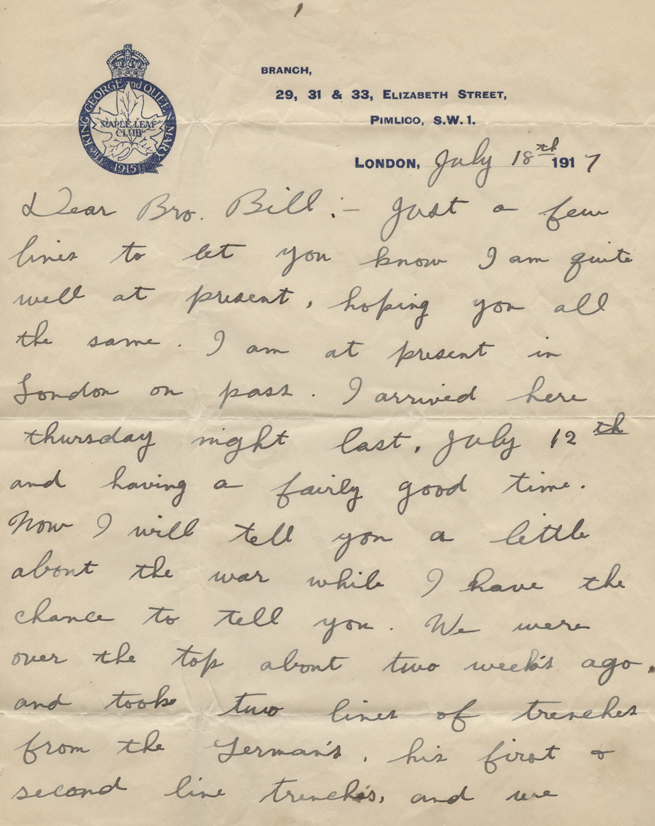 1
BRANCH,
29, 31 & 33, ELIZABETH STREET,
PIMLICO, S.W.1.
The KING GEORGE and QUEEN MARY
MAPLE LEAF
CLUB
1915
LONDON, July 18th 1917
Dear Bro. Bill :- Just a few
lines to let you know I am quite
well at present, hoping you all
the same. I am at present in
London on pass. I arrived here
thursday night last, July 12th
and having a fairly good time.
Now I will tell you a little
about the war while I have the
chance to tell you. We were
over the top about two week's ago.
and took two lines of trenches
from the German's, his first &
second line trench's, and we